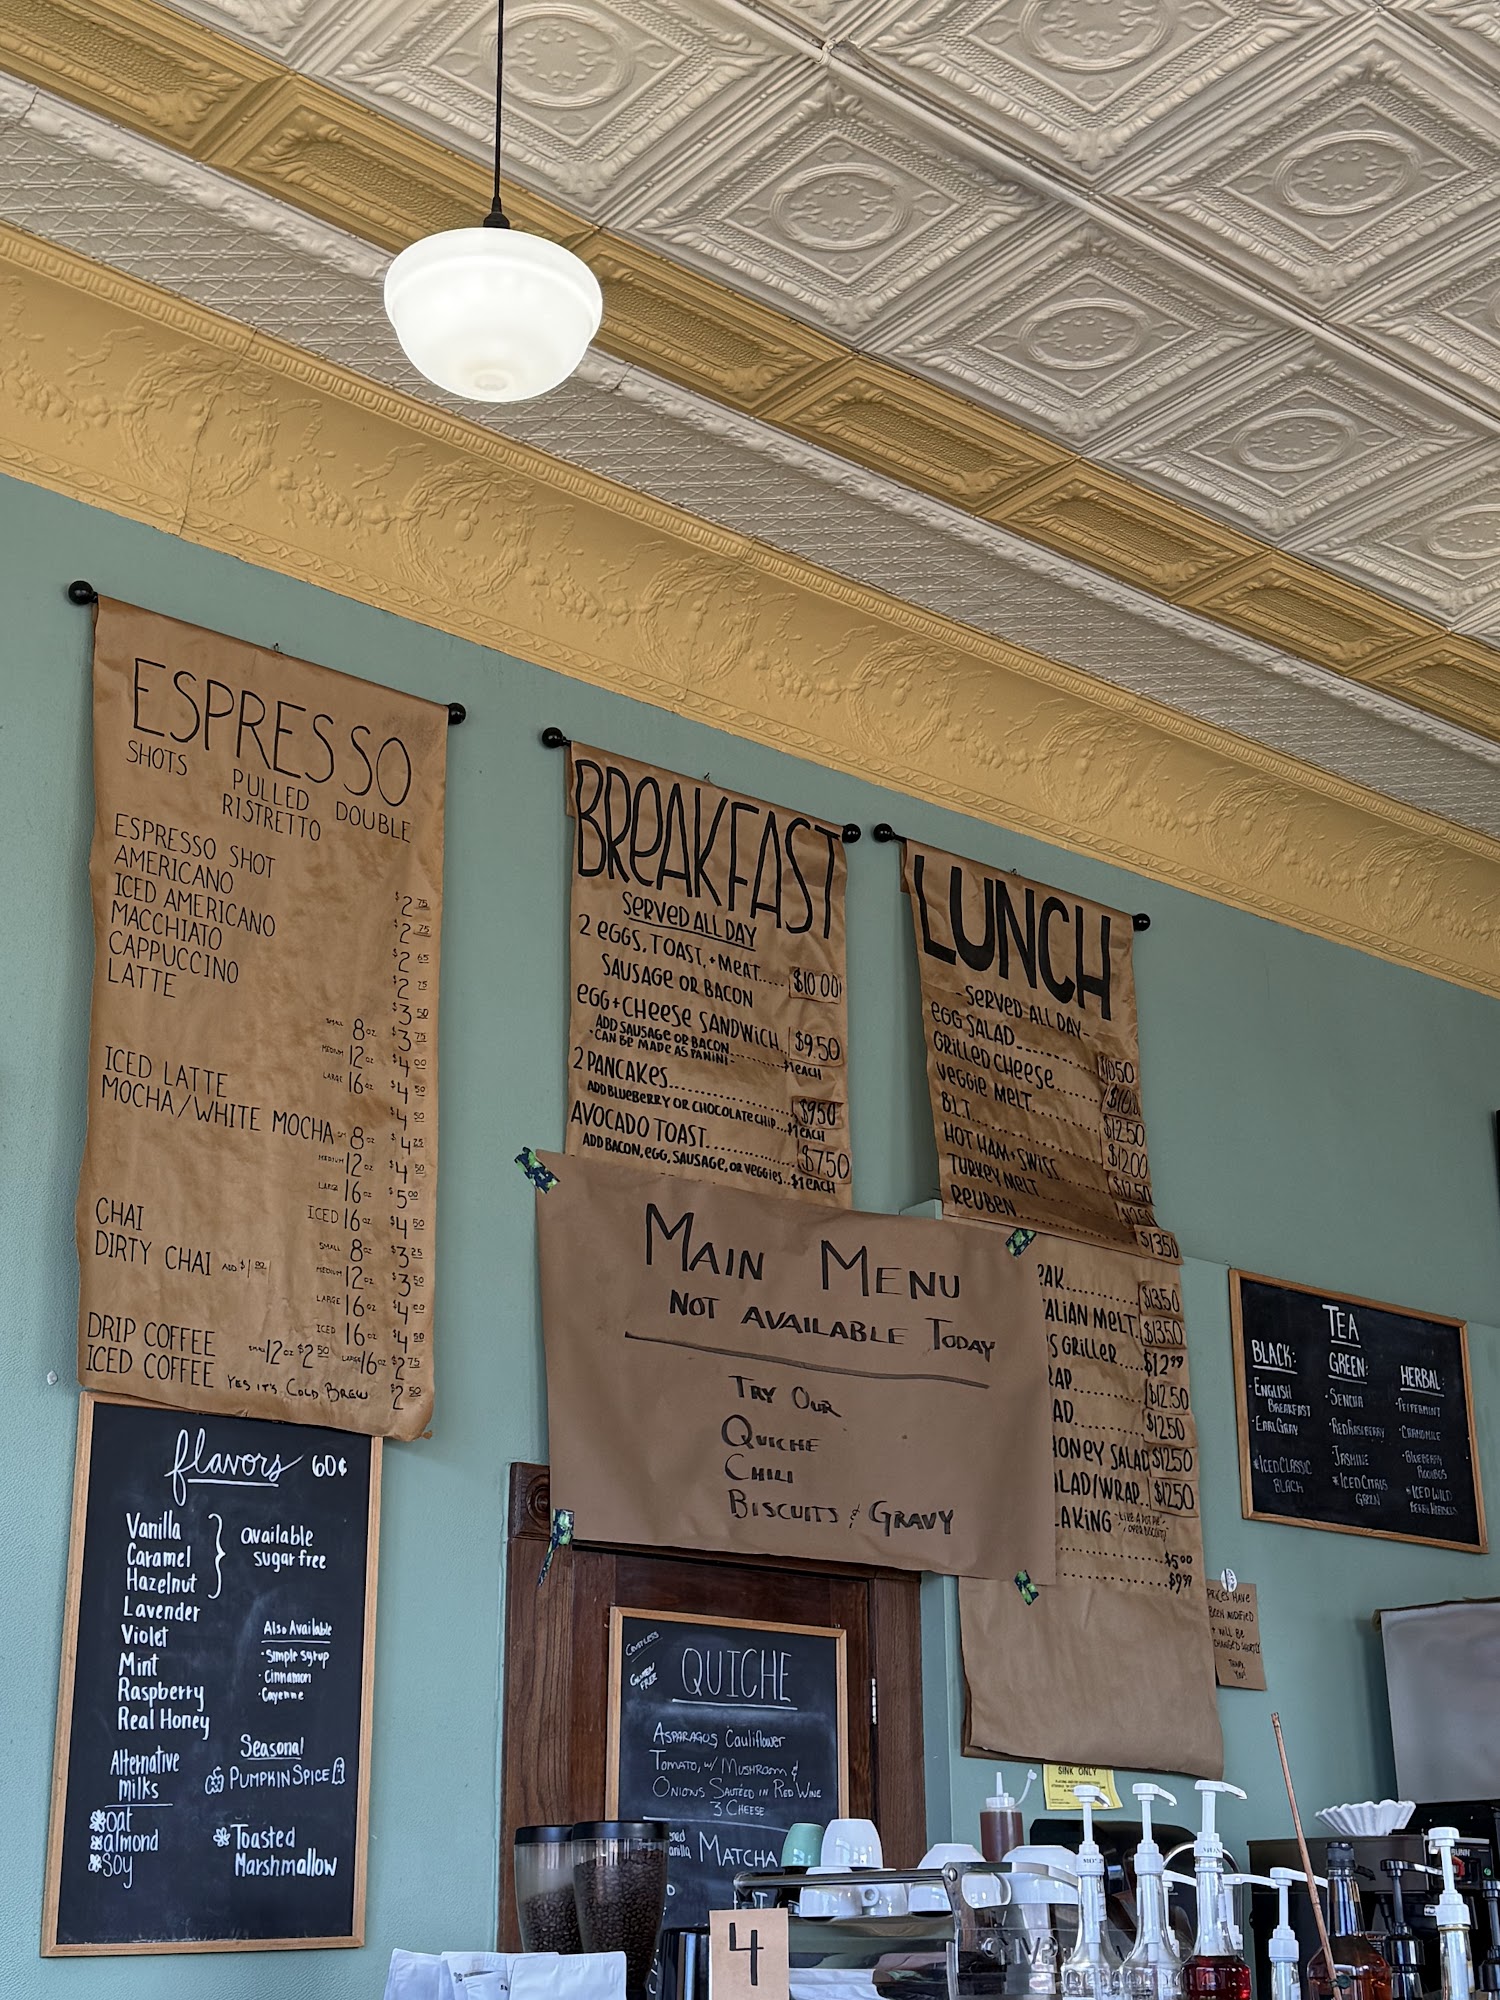 ESPRESSO
SHOTS PULLED DOUBLE
RISTRETTO
ESPRESSO SHOT $2.75
AMERICANO $2.75
ICED AMERICANO $2.65
MACCHIATO $2.75
CAPPUCCINO $3.50
LATTE SMALL 8oz $3.75
MEDIUM 12oz $4.00
LARGE 16oz $4.50
ICED LATTE $4.50
MOCHA/WHITE MOCHA SM 8oz $4.25
MEDIUM 12oz $4.50
LARGE 16oz $5.00
ICED 16oz $4.50
CHAI SMALL 8oz $3.25
DIRTY CHAI ADD $1.00 MEDIUM 12oz $3.50
LARGE 16oz $4.00
ICED 16oz $4.50
DRIP COFFEE SMALL 12oz $2.50 LARGE 16oz $2.75
ICED COFFEE YES IT'S COLD BREW $2.50
flavors 60¢
Vanilla
Caramel
Hazelnut
available
sugar free
Lavender
Violet
Mint
Raspberry
Real Honey
Also Available
·Simple syrup
·Cinnamon
·Cayenne
Alternative
milks
oat
almond
soy
Seasonal
PUMPKIN SPICE
Toasted
Marshmallow
BREAKFAST
SERVED ALL DAY
2 EGGS, TOAST, + MEAT..... $10.00
SAUSAGE OR BACON
EGG + CHEESE SANDWICH.. $9.50
ADD SAUSAGE OR BACON.......... $1 EACH
·CAN BE MADE AS PANINI·
2 PANCAKES............ $9.50
ADD BLUEBERRY OR CHOCOLATE CHIP...$1 EACH
AVOCADO TOAST.......... $7.50
ADD BACON, EGG, SAUSAGE, OR VEGGIES..$1 EACH
LUNCH
-SERVED ALL DAY-
EGG SALAD.......... $10.50
GRILLED CHEESE......
VEGGIE MELT......... $12.50
BLT.............. $12.00
HOT HAM + SWISS..... $12.50
TURKEY MELT.........
REUBEN............. $13.50
EAK............ $13.50
ALIAN MELT.. $13.50
S GRILLER.... $12.99
RAP......... $12.50
AD......... $12.50
HONEY SALAD $12.50
ALAD/WRAP.. $12.50
AKING
$5.00
$9.99
MAIN MENU
NOT AVAILABLE TODAY
TRY OUR
QUICHE
CHILI
BISCUITS & GRAVY
CRUSTLESS
GLUTEN
FREE
QUICHE
ASPARAGUS, CAULIFLOWER
TOMATO, W/ MUSHROOM &
ONIONS SAUTÉED IN RED WINE
3 CHEESE
MATCHA
TEA
BLACK:
·ENGLISH
BREAKFAST
·EARL GRAY
*ICED CLASSIC
BLACK
GREEN:
·SENCHA
·RED RASPBERRY
JASMINE
*ICED CITRUS
GREEN
HERBAL:
·PEPPERMINT
·CHAMOMILE
·BLUEBERRY
ROOIBOS
*ICED WILD
BERRY HIBISCUS
PRICES HAVE
BEEN MODIFIED
+ WILL BE
CHANGED SHORTLY
THANK
YOU!
SINK ONLY
4
BUNN